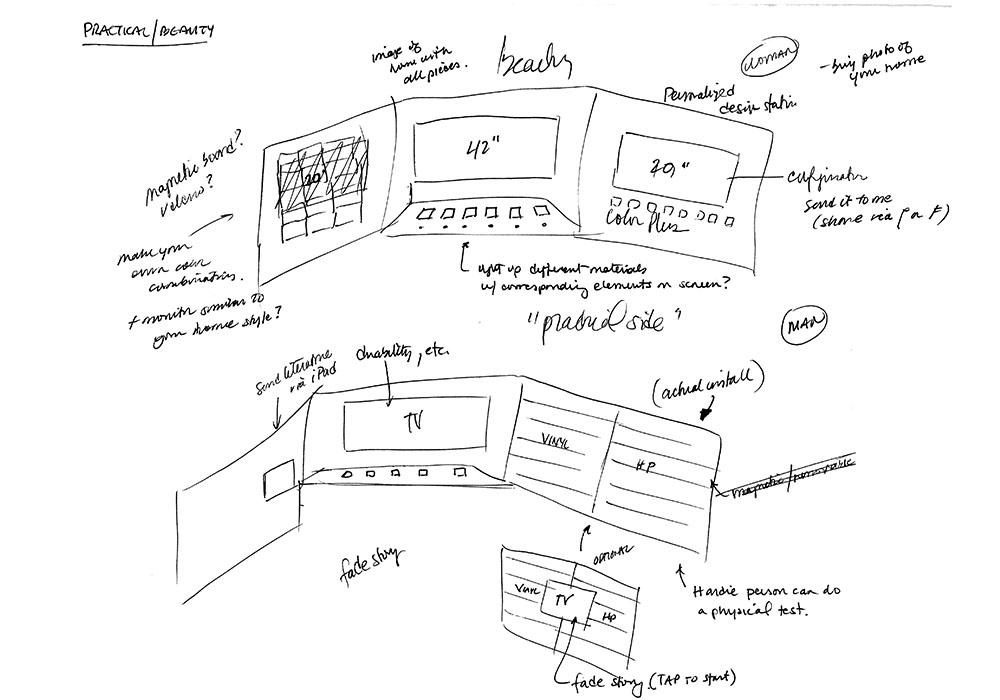 PRACTICAL/BEAUTY
image of
home with
all pieces.
beauty
WOMAN
- buy photo of
your home
Personalized
design station
magnetic board?
velcro?
20"
42"
20"
configurator
send it to me
(share via P or F)
Color Plus
make your
own color
combination.
+ monitor similar to
your home style?
light up different materials
w/ corresponding elements on screen?
"practical side"
MAN
send literature
via iPad
durability, etc.
(actual install)
TV
VINYL
HP
magnetic/
fade story
OPTIONAL
VINYL
TV
HP
Hardie person can do
a physical test.
fade story (TAP TO START)